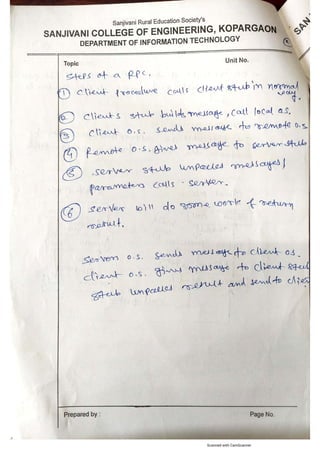 Sanjivani Rural Education Society's
SANJIVANI COLLEGE OF ENGINEERING, KOPARGAON
DEPARTMENT OF INFORMATION TECHNOLOGY
SAN
Topic
Unit No.
Steps of a RPC.
① Client procedure calls client stub in normal
way.
② Client's stub builds message, call local O.S.
③ Client O.S. sends message to remote O.S
④ Remote O.S. gives message to server stub
⑤ Server stub unpacks messages/
parameters calls server.
⑥ Server will do some work & return
result.
Server O.S. sends message to client O.S.
Client O.S. gives message to client stub
stub unpacks result and send to client
Prepared by :
Page No.
Scanned with CamScanner